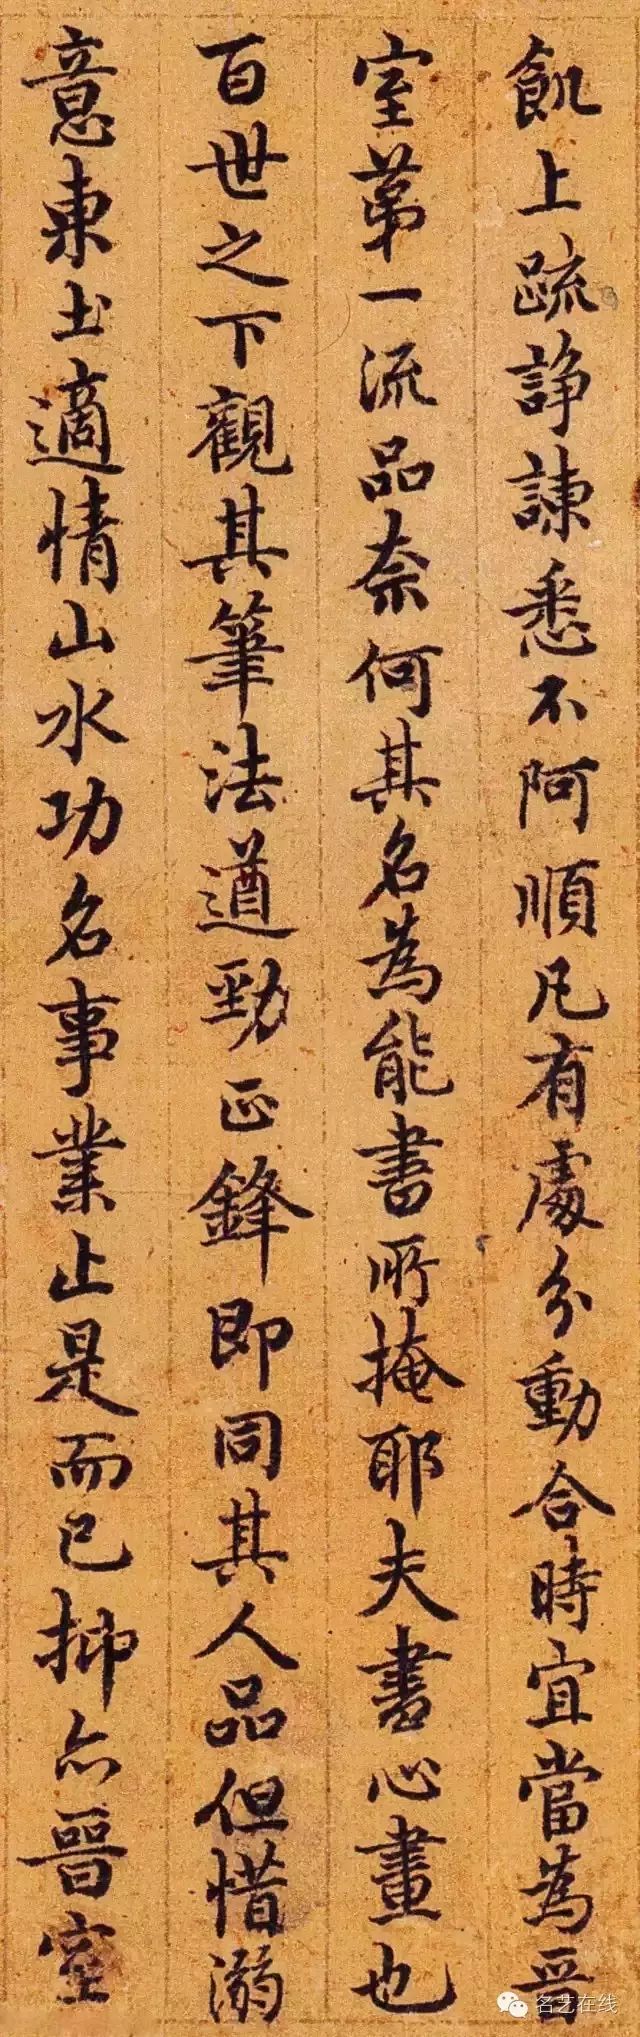 飢上疏諍諫悉不阿順凡有處分動合時宜當為晉
室苐一流品奈何其名為能書所掩耶夫書心畫也
百世之下觀其筆法遒勁正鋒即同其人品但惜溺
意東土適情山水功名事業止是而已抑亦晉室
名艺在线